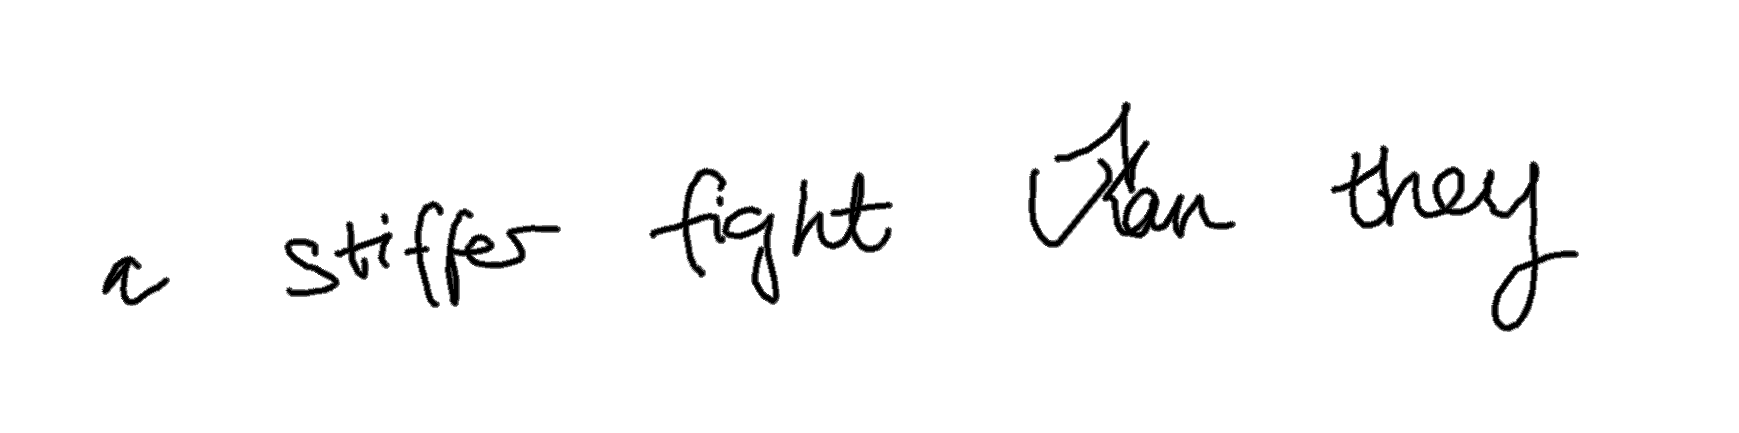 a stiffer fight than they